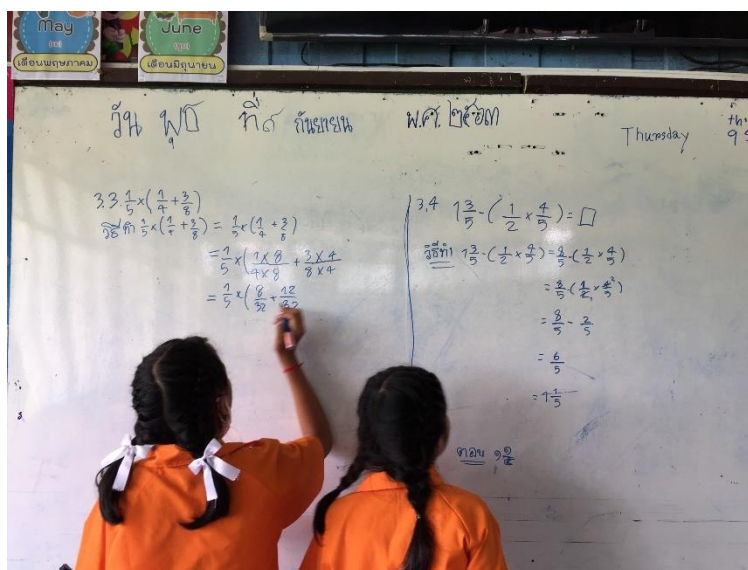 May
เดือนพฤษภาคม
June
เดือนมิถุนายน
วัน พุธ ที่ ๙ กันยายน พ.ศ. ๒๕๖๓
Thursday
3.3. 1/5 × (1/4 + 3/8)
วิธีทำ 1/5 × (1/4 + 3/8) = 1/5 × (1/4 + 3/8)
= 1/5 × (1 × 8/4 × 8 + 3 × 4/8 × 4
= 1/5 × (8/32 + 12/32
3.4 1 3/5 - (1/2 × 4/5) = □
วิธีทำ 1 3/5 - (1/2 × 4/5) = 8/5 - (1/2 × 4/5)
= 8/5 - (1/2 × 4/5)
= 8/5 - 2/5
= 6/5
= 1 1/5
ตอบ ๑ ๑/๕